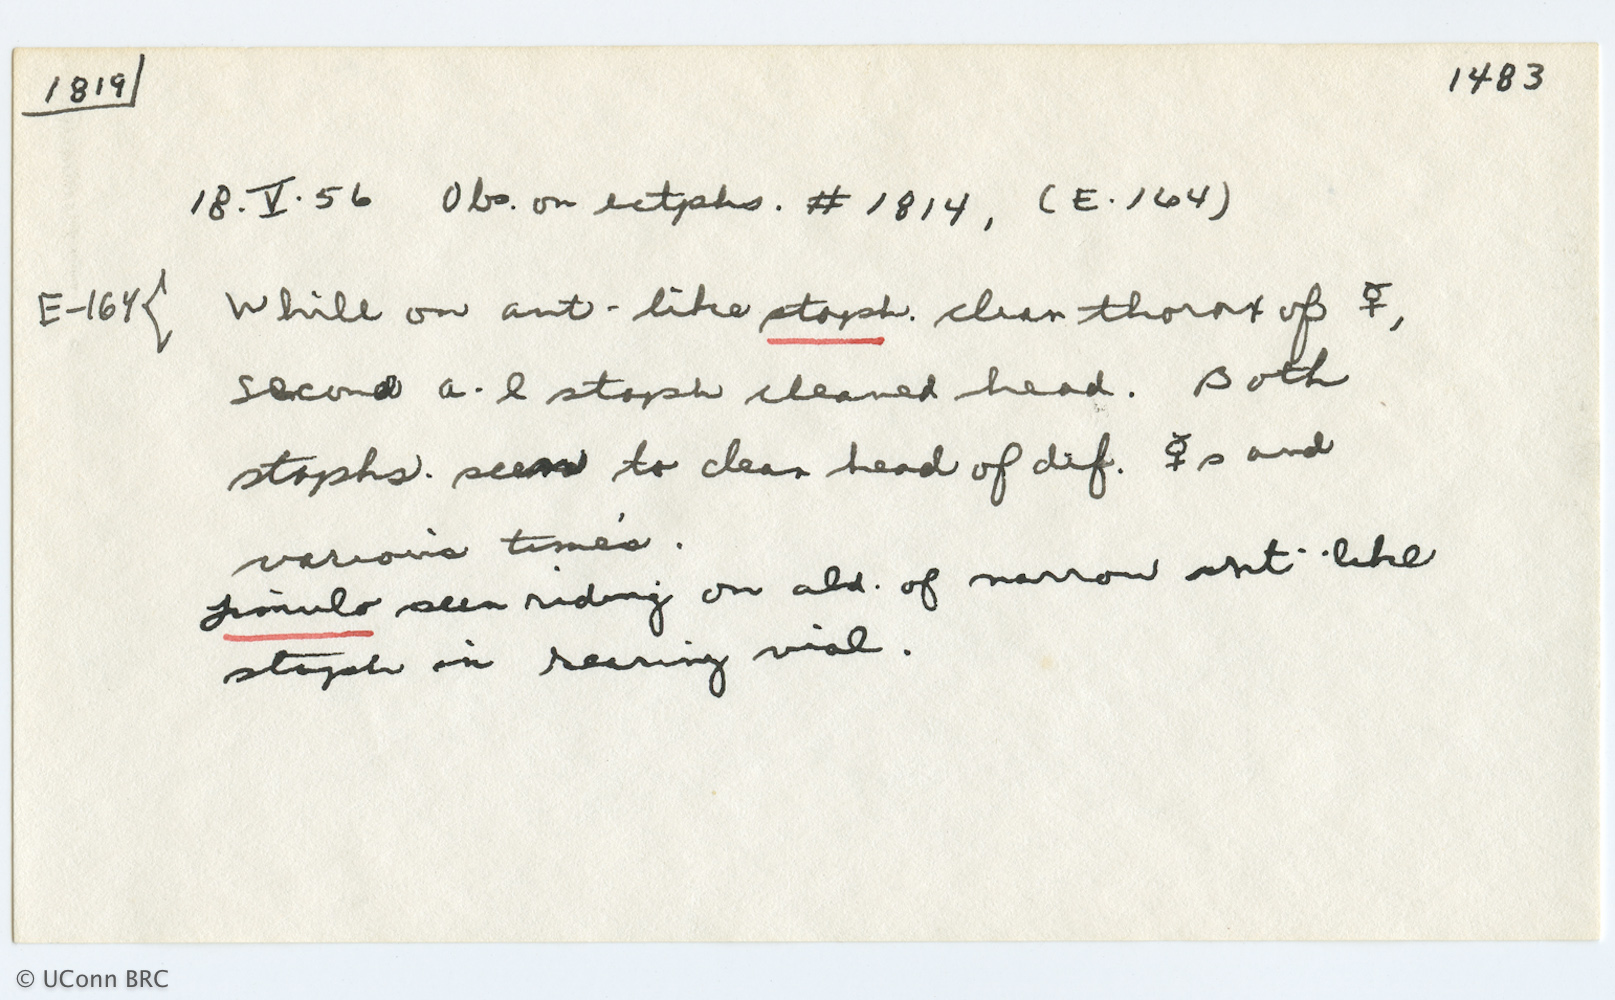 1819
1483
18.V.56 Obs. on ectphs. # 1814, (E.164)
E-164{ While on ant-like staph. clean thorax of ☿,
second a-l staph cleaned head. Both
staphs. seen to clean head of dif. ☿s and
various times.
Limulo seen riding on abd. of narrow ant-like
staph in rearing vial.
© UConn BRC